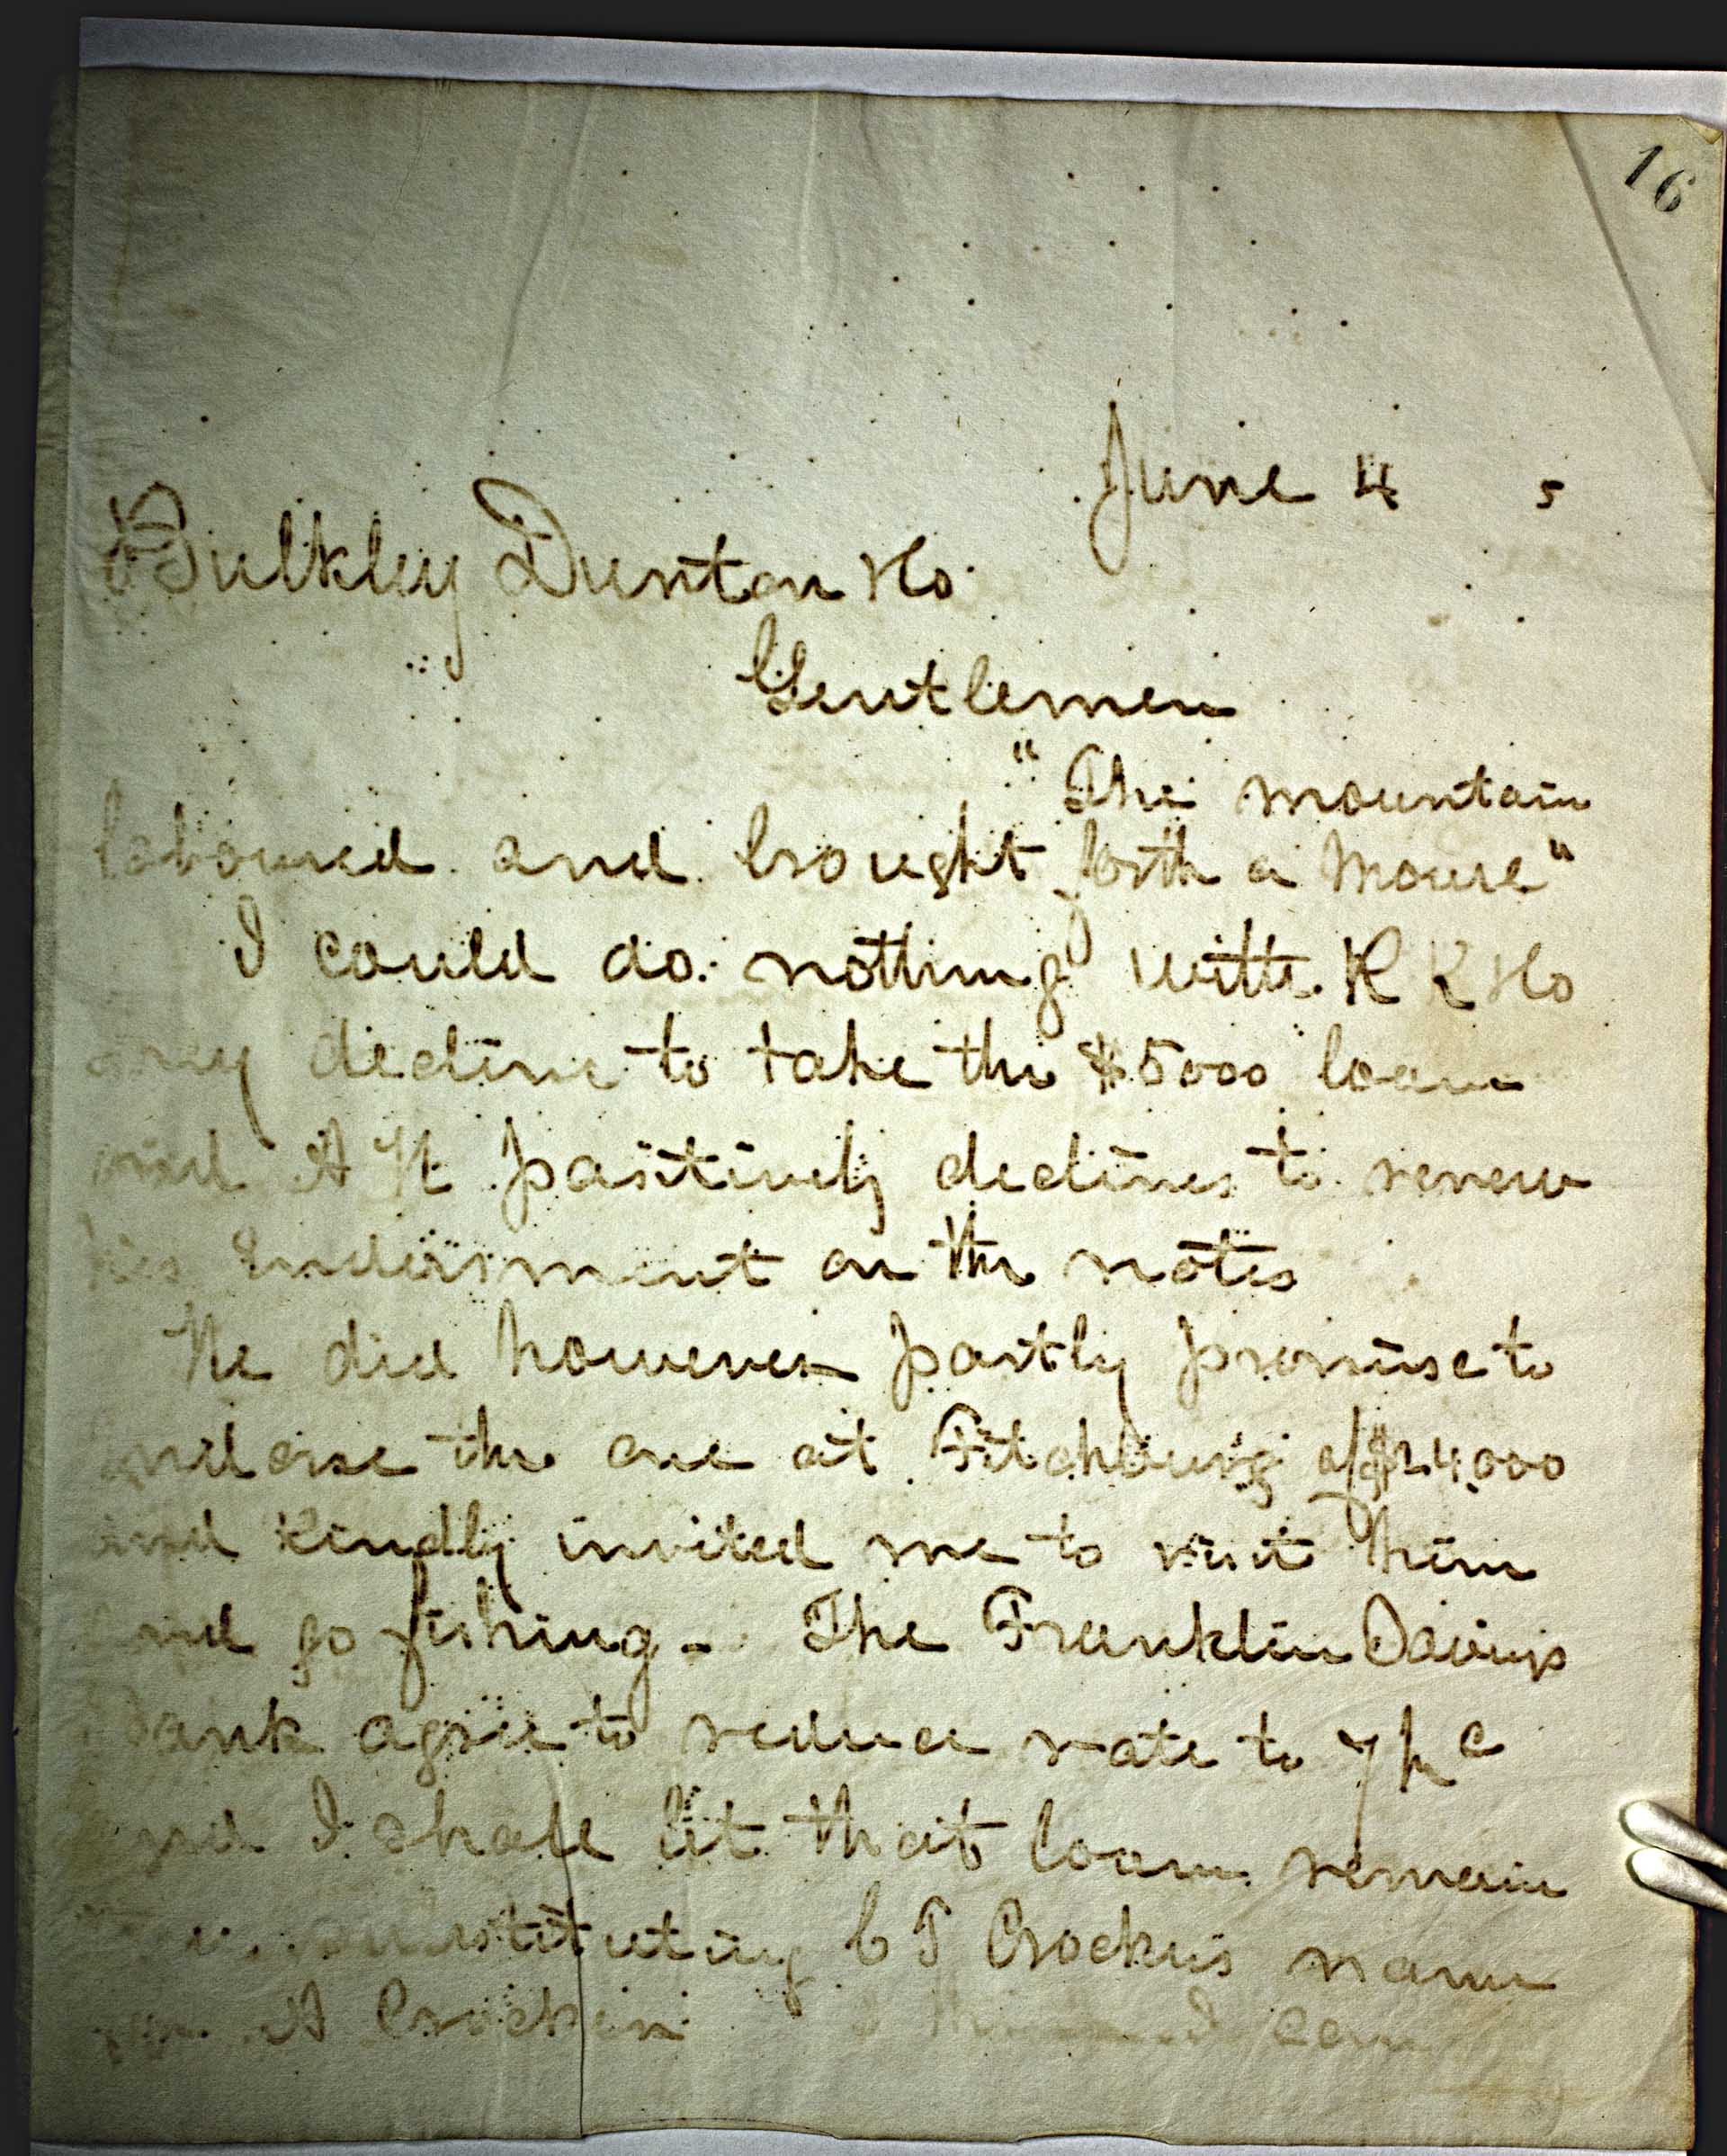 16
June 4 5
Bulkley Dunton & Co.
Gentlemen
"The mountain
laboured and brought forth a Mouse"
I could do nothing with R K & Co
they decline to take the $5000 loan
and positively declines to renew
his indorsment on the notes
He did however partly promise to
endorse the one at Fitchburg of $24,000
and kindly invited me to visit him
and go fishing - The Franklin Savings
Bank agree to reduce rate to 7 p c
and I shall let that loan remain
substituting C T Crockers name
for A Crocker I can